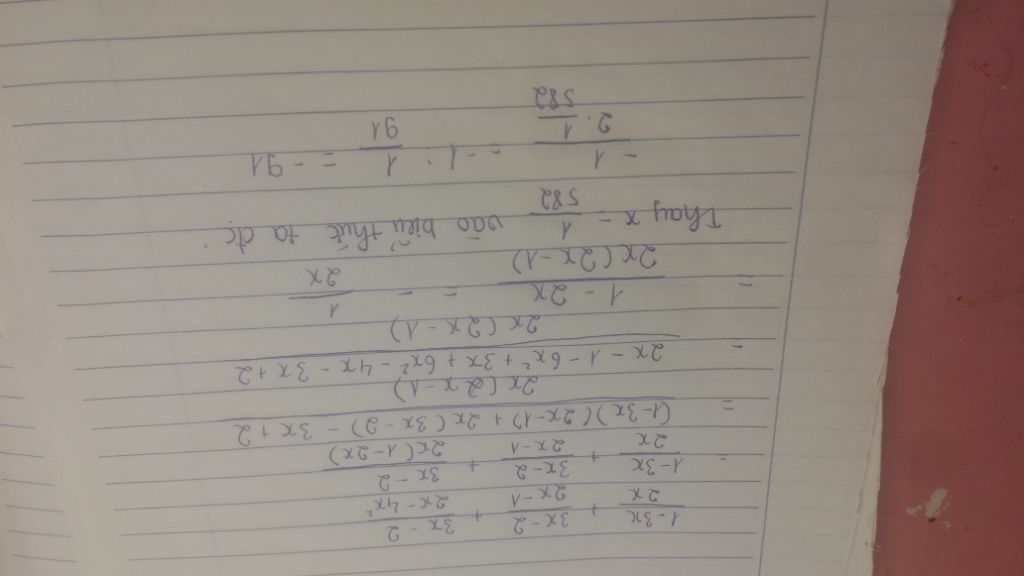 1-3x/2x + 3x-2/2x-1 + 3x-2/2x-4x²
= 1-3x/2x + 3x-2/2x-1 + 3x-2/2x(1-2x)
= (1-3x)(2x-1)+2x(3x-2)-3x+2/2x(2x-1)
= 2x-1-6x²+3x+6x²-4x-3x+2/2x(2x-1)
= 1-2x/2x(2x-1) = -1/2x
Thay x = 1/582 vào biểu thức ta đc
-1/2.1/582 = -1.1/91 = -91